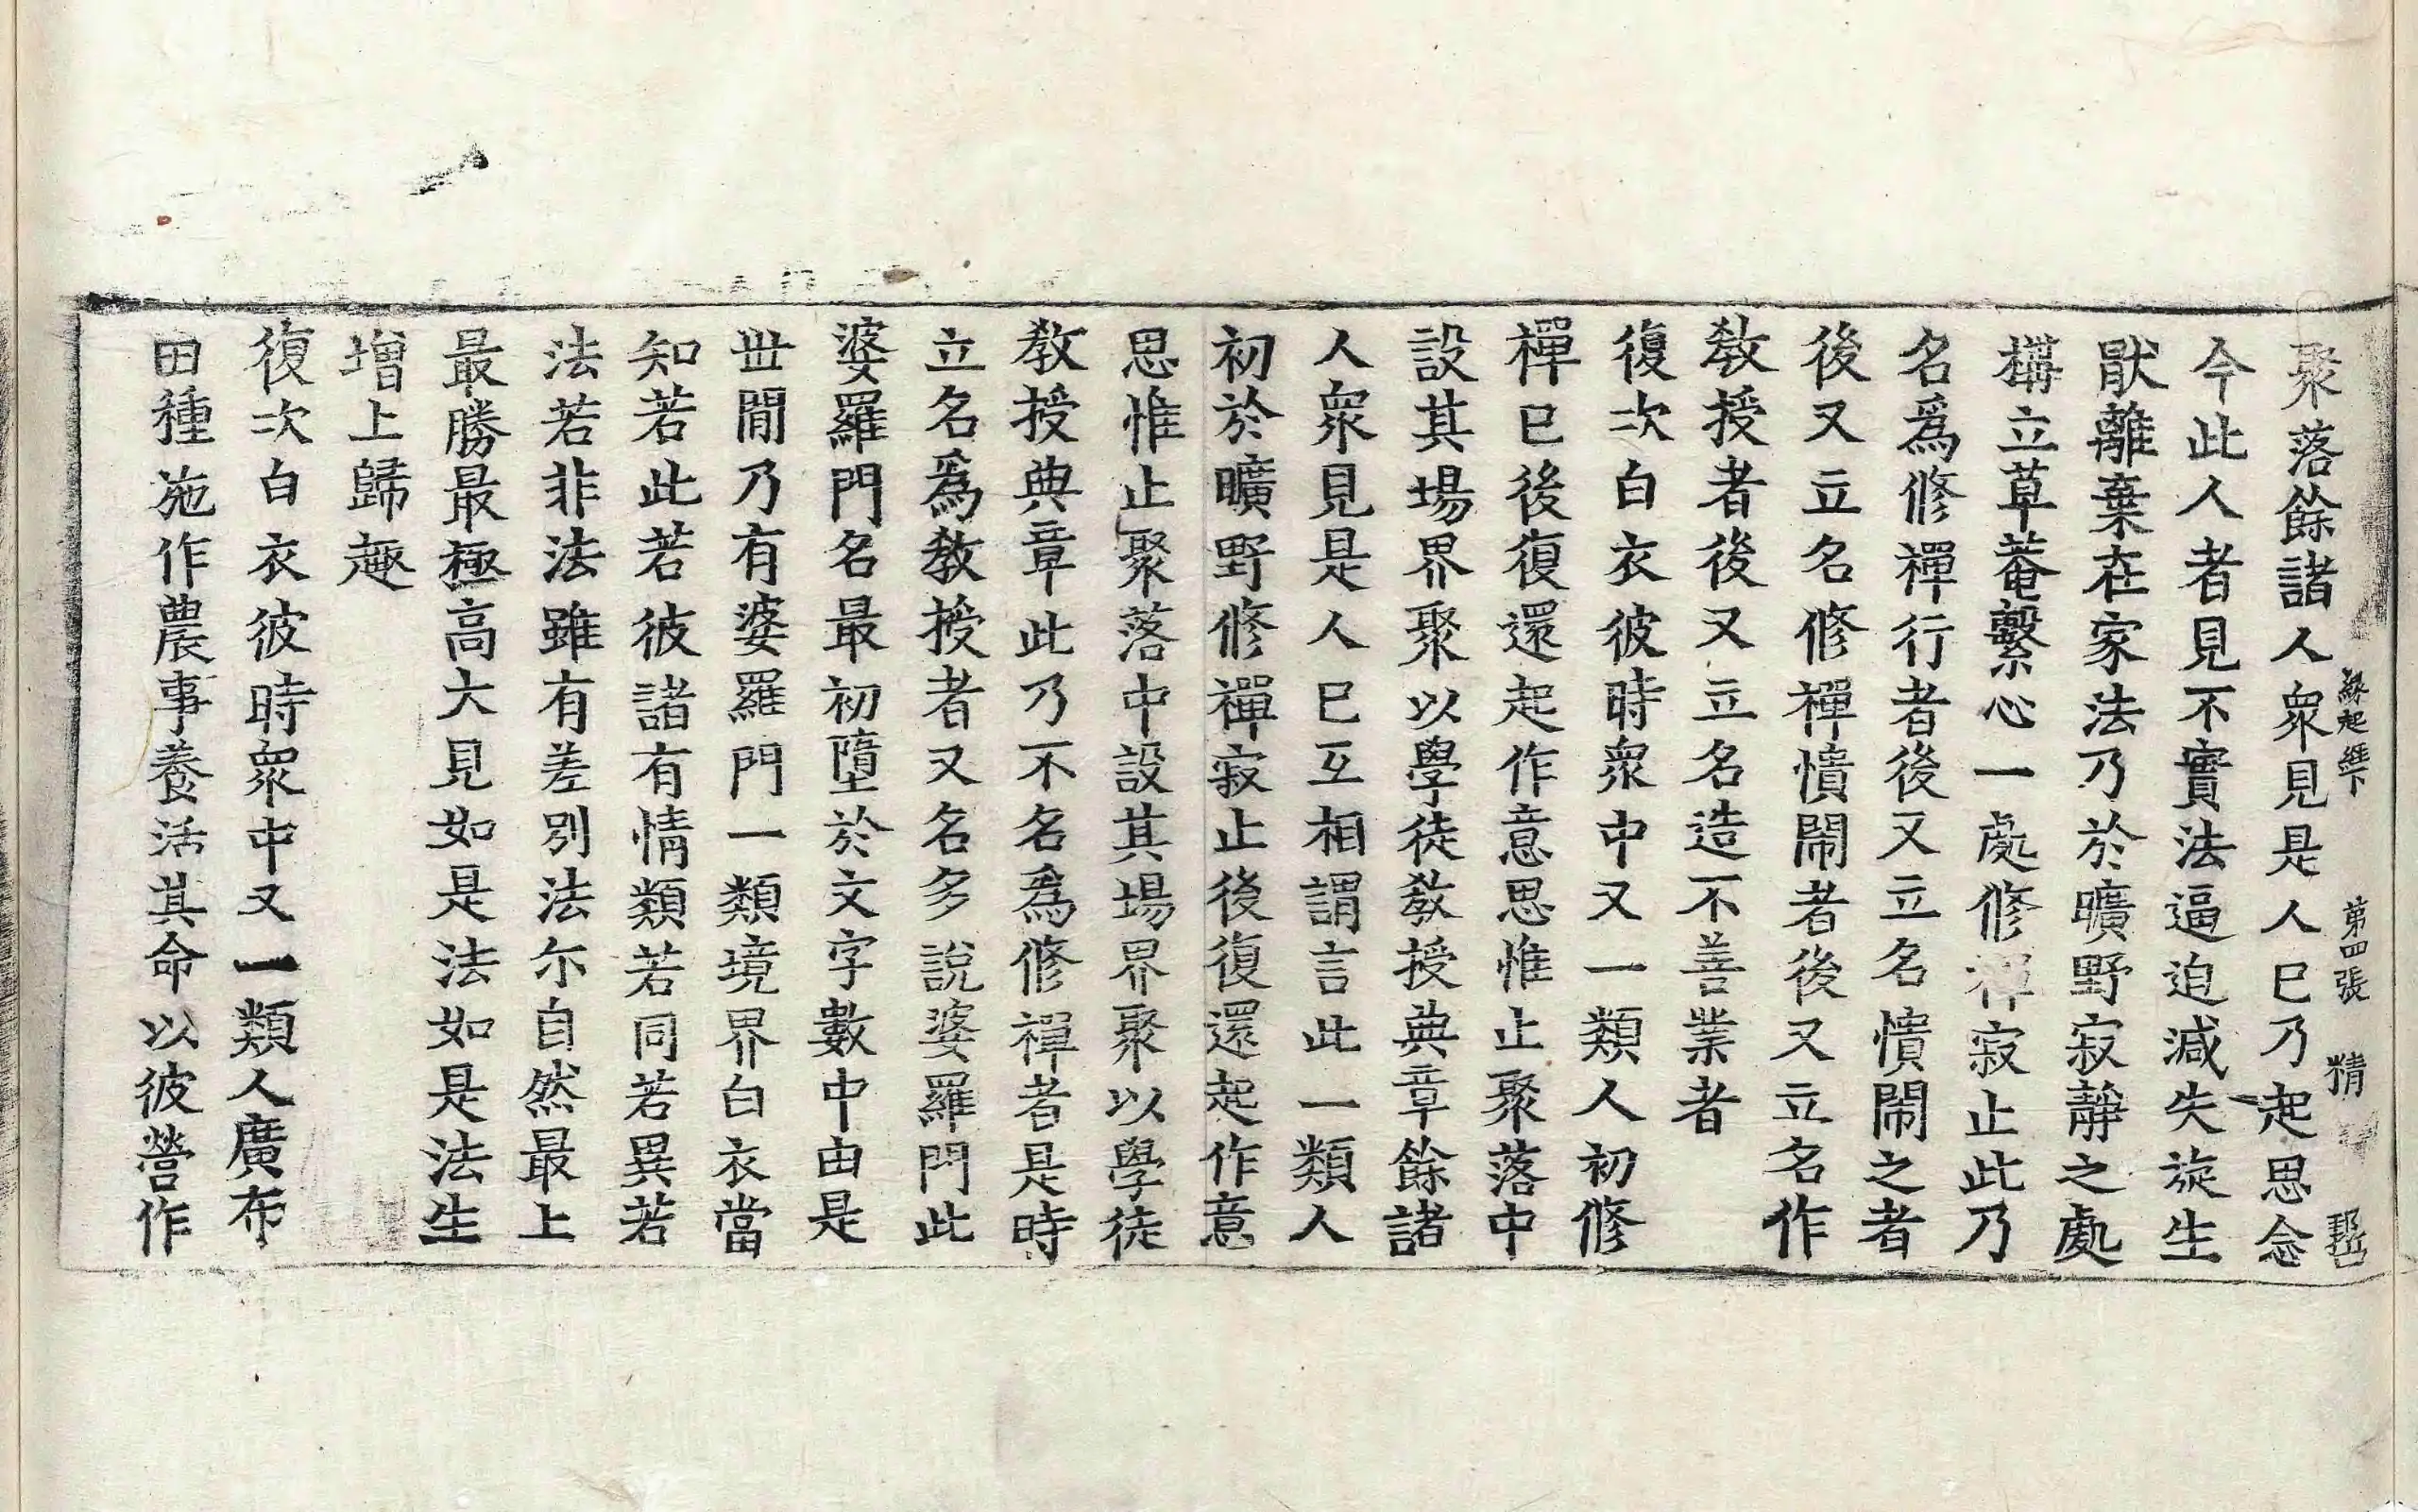 緣起經下 第四張 精
聚落餘諸人衆見是人巳乃起思念
今此人者見不實法逼迫減失旋生
猒離棄在家法乃於曠野寂靜之處
構立草菴繫心一處修禪寂止此乃
名爲修禪行者後又立名憒閙之者
後又立名修禪憒閙者後又立名作
教授者後又立名造不善業者
復次白衣彼時衆中又一類人初修
禪巳後復還起作意思惟止聚落中
設其場界聚以學徒教授典章餘諸
人衆見是人巳互相謂言此一類人
初於曠野修禪寂止後復還起作意
思惟止聚落中設其場界聚以學徒
教授典章此乃不名爲修禪者是時
立名爲教授者又名多說婆羅門此
婆羅門名最初墮於文字數中由是
丗閒乃有婆羅門一類境界白衣當
知若此若彼諸有情類若同若異若
法若非法雖有差別法尓自然最上
最勝最極高大見如是法如是法生
增上歸趣
復次白衣彼時衆中又一類人廣布
田種施作農事養活其命以彼營作